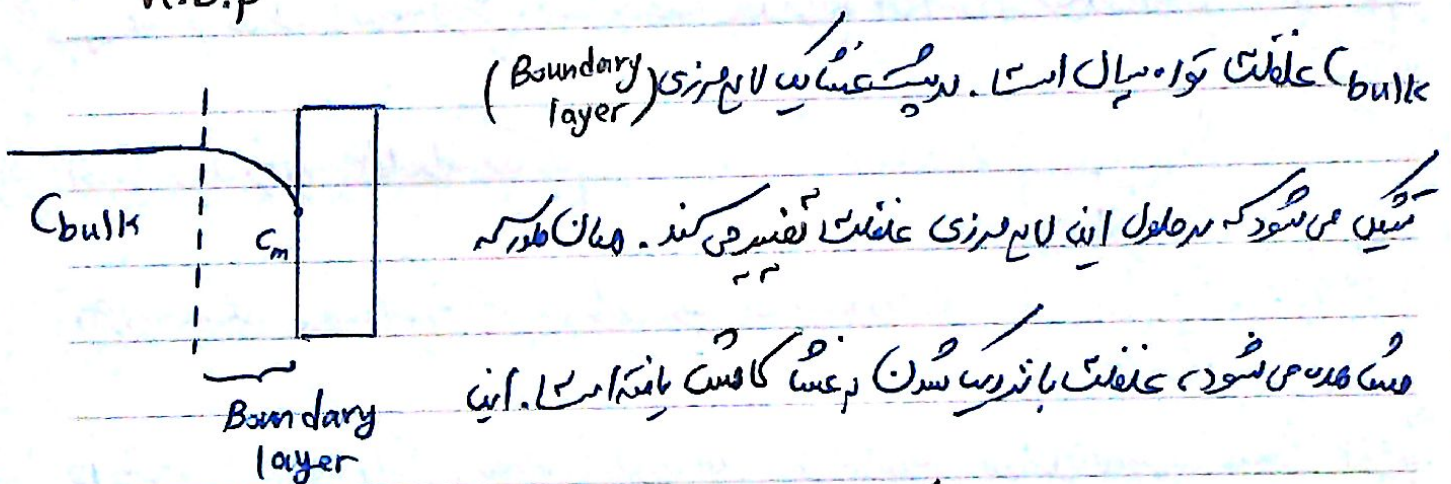 C bulk غلظت توده سیال است. در پشت غشا یک لایه مرزی (Boundary layer)
تشکیل می شود که در طول این لایه مرزی غلظت تغییر می کند. همان طور که
مشاهده می شود، غلظت با نزدیک شدن به غشا کاهش یافته است. این
C bulk
Cm
Boundary
layer